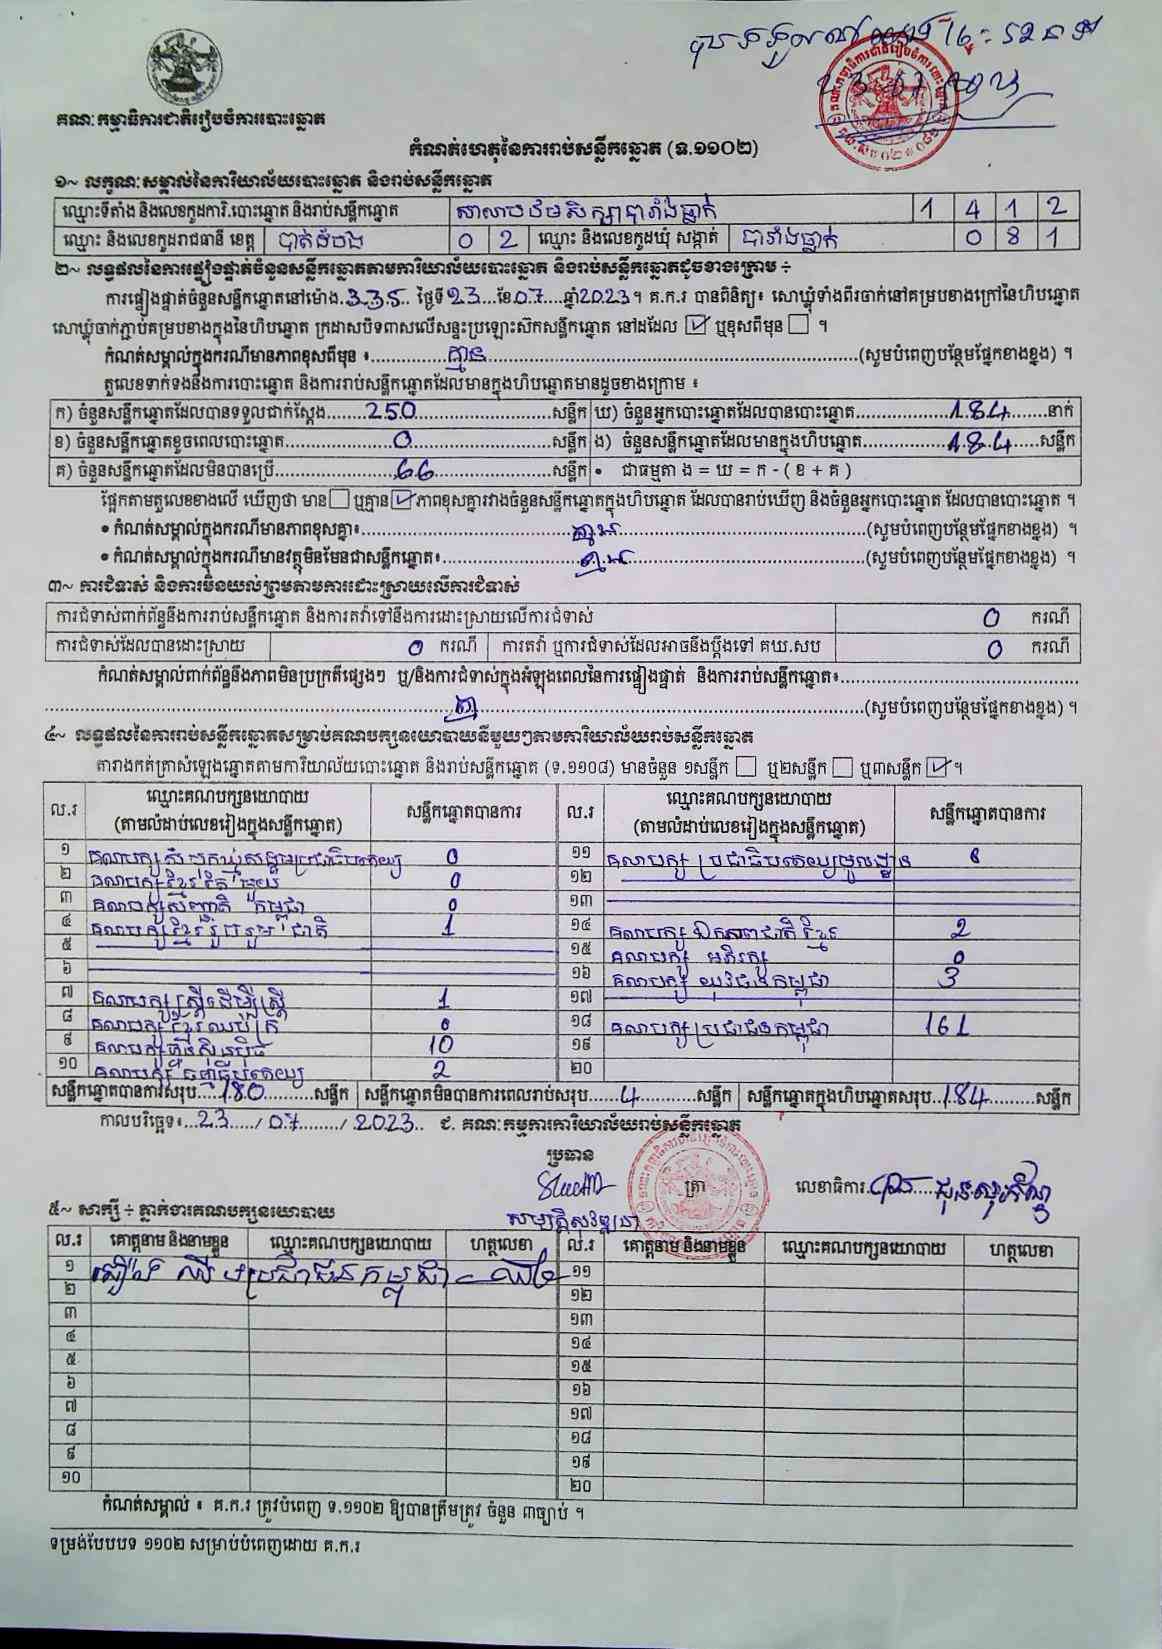 គណៈកម្មាធិការជាតិរៀបចំការបោះឆ្នោត
កំណត់ហេតុនៃការរាប់សន្លឹកឆ្នោត (ទ.១១០២)
១~ លក្ខណៈសម្គាល់នៃការិយាល័យបោះឆ្នោត និងរាប់សន្លឹកឆ្នោត
ឈ្មោះទីតាំង និងលេខកូដការិ.បោះឆ្នោត និងរាប់សន្លឹកឆ្នោត សាលាបឋមសិក្សាបារាំងធ្លាក់ 1 4 1 2
ឈ្មោះ និងលេខកូដរាជធានី ខេត្ត បាត់ដំបង 0 2 ឈ្មោះ និងលេខកូដឃុំ សង្កាត់ បារាំងធ្លាក់ 0 8 1
២~ លទ្ធផលនៃការផ្ទៀងផ្ទាត់ចំនួនសន្លឹកឆ្នោតតាមការិយាល័យបោះឆ្នោត និងរាប់សន្លឹកឆ្នោតដូចខាងក្រោម ÷
ការផ្ទៀងផ្ទាត់ចំនួនសន្លឹកឆ្នោតនៅម៉ោង.3:35.. ថ្ងៃទី23...ខែ.07....ឆ្នាំ2023។ គ.ក.រ បានពិនិត្យ៖ សោឃ្លុំទាំងពីរចាក់នៅគម្របខាងក្រៅនៃហិបឆ្នោត
សោឃ្លុំចាក់ភ្ជាប់គម្របខាងក្នុងនៃហិបឆ្នោត ក្រដាសបិទពាសលើសន្ទះប្រឡោះស៊កសន្លឹកឆ្នោត នៅដដែល ☑ ឬខុសពីមុន ☐ ។
កំណត់សម្គាល់ក្នុងករណីមានភាពខុសពីមុន ៖..............គ្មាន..............(សូមបំពេញបន្ថែមផ្នែកខាងខ្នង) ។
តួលេខទាក់ទងនឹងការបោះឆ្នោត និងការរាប់សន្លឹកឆ្នោតដែលមានក្នុងហិបឆ្នោតមានដូចខាងក្រោម ៖
ក) ចំនួនសន្លឹកឆ្នោតដែលបានទទួលជាក់ស្តែង.......250..............សន្លឹក ឃ) ចំនួនអ្នកបោះឆ្នោតដែលបានបោះឆ្នោត..............184.......នាក់
ខ) ចំនួនសន្លឹកឆ្នោតខូចពេលបោះឆ្នោត..............0..............សន្លឹក ង) ចំនួនសន្លឹកឆ្នោតដែលមានក្នុងហិបឆ្នោត..............184.......សន្លឹក
គ) ចំនួនសន្លឹកឆ្នោតដែលមិនបានប្រើ..............66..............សន្លឹក • ជាធម្មតា ង = ឃ = ក - ( ខ + គ )
ផ្អែកតាមតួលេខខាងលើ ឃើញថា មាន☐ ឬគ្មាន☑ ភាពខុសគ្នារវាងចំនួនសន្លឹកឆ្នោតក្នុងហិបឆ្នោត ដែលបានរាប់ឃើញ និងចំនួនអ្នកបោះឆ្នោត ដែលបានបោះឆ្នោត ។
• កំណត់សម្គាល់ក្នុងករណីមានភាពខុសគ្នា៖..............គ្មាន..............(សូមបំពេញបន្ថែមផ្នែកខាងខ្នង) ។
• កំណត់សម្គាល់ក្នុងករណីមានវត្ថុមិនមែនជាសន្លឹកឆ្នោត៖..............គ្មាន..............(សូមបំពេញបន្ថែមផ្នែកខាងខ្នង) ។
៣~ ការជំទាស់ និងការមិនយល់ព្រមតាមការដោះស្រាយលើការជំទាស់
ការជំទាស់ពាក់ព័ន្ធនឹងការរាប់សន្លឹកឆ្នោត និងការតវ៉ាទៅនឹងការដោះស្រាយលើការជំទាស់ 0 ករណី
ការជំទាស់ដែលបានដោះស្រាយ 0 ករណី ការតវ៉ា ឬការជំទាស់ដែលអាចនឹងប្តឹងទៅ គឃ.សប 0 ករណី
កំណត់សម្គាល់ពាក់ព័ន្ធនឹងភាពមិនប្រក្រតីផ្សេងៗ ឬ/និងការជំទាស់ក្នុងអំឡុងពេលនៃការផ្ទៀងផ្ទាត់ និងការរាប់សន្លឹកឆ្នោត៖..............
..............(សូមបំពេញបន្ថែមផ្នែកខាងខ្នង) ។
៤~ លទ្ធផលនៃការរាប់សន្លឹកឆ្នោតសម្រាប់គណបក្សនយោបាយនីមួយៗតាមការិយាល័យរាប់សន្លឹកឆ្នោត
តារាងកត់ត្រាសំឡេងឆ្នោតតាមការិយាល័យបោះឆ្នោត និងរាប់សន្លឹកឆ្នោត (ទ.១១០៨) មានចំនួន ១សន្លឹក ☐ ឬ២សន្លឹក ☐ ឬ៣សន្លឹក ☑ ។
ល.រ ឈ្មោះគណបក្សនយោបាយ សន្លឹកឆ្នោតបានការ ល.រ ឈ្មោះគណបក្សនយោបាយ សន្លឹកឆ្នោតបានការ
(តាមលំដាប់លេខរៀងក្នុងសន្លឹកឆ្នោត) (តាមលំដាប់លេខរៀងក្នុងសន្លឹកឆ្នោត)
១ គណបក្ស សំបុកឃ្មុំសង្គមប្រជាធិបតេយ្យ 0 ១១ គណបក្ស ប្រជាធិបតេយ្យមូលដ្ឋាន
២ គណបក្សខ្មែរតែមួយ 0 ១២
៣ គណបក្សសញ្ជាតិ កម្ពុជា 0 ១៣
៤ គណបក្សខ្មែររួបរួមជាតិ 1 ១៤ គណបក្ស ឯកភាពជាតិខ្មែរ 2
៥ ១៥ គណបក្ស អភិរក្ស 0
៦ ១៦ គណបក្ស យុវជនកម្ពុជា 3
៧ គណបក្សស្ត្រីដើម្បីស្ត្រី 1 ១៧
៨ គណបក្សខ្មែរឈប់ក្រ 0 ១៨ គណបក្សប្រជាជនកម្ពុជា 161
៩ គណបក្សហ៊្វុនស៊ិនប៉ិច 10 ១៩
១០ គណបក្ស ធម្មាធិបតេយ្យ 2 ២០
សន្លឹកឆ្នោតបានការសរុប....180..........សន្លឹក សន្លឹកឆ្នោតមិនបានការពេលរាប់សរុប......4..........សន្លឹក សន្លឹកឆ្នោតក្នុងហិបឆ្នោតសរុប..184..........សន្លឹក
កាលបរិច្ឆេទ៖...23...../.07......../.2023.. ជ. គណៈកម្មការការិយាល័យរាប់សន្លឹកឆ្នោត
ប្រធាន
ត្រា លេខាធិការ
៥~ សាក្សី ÷ ភ្នាក់ងារគណបក្សនយោបាយ
ល.រ គោត្តនាម និងនាមខ្លួន ឈ្មោះគណបក្សនយោបាយ ហត្ថលេខា ល.រ គោត្តនាម និងនាមខ្លួន ឈ្មោះគណបក្សនយោបាយ ហត្ថលេខា
១ ប្រជាជនកម្ពុជា ១១
២ ១២
៣ ១៣
៤ ១៤
៥ ១៥
៦ ១៦
៧ ១៧
៨ ១៨
៩ ១៩
១០ ២០
កំណត់សម្គាល់ ៖ គ.ក.រ ត្រូវបំពេញ ទ.១១០២ ឱ្យបានត្រឹមត្រូវ ចំនួន ៣ច្បាប់ ។
ទម្រង់បែបបទ ១១០២ សម្រាប់បំពេញដោយ គ.ក.រ